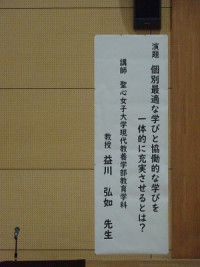 演題 個別最適な学びと協働的な学びを
一体的に充実させるとは？
講師 聖心女子大学現代教養学部教育学科
教授 益川 弘如 先生